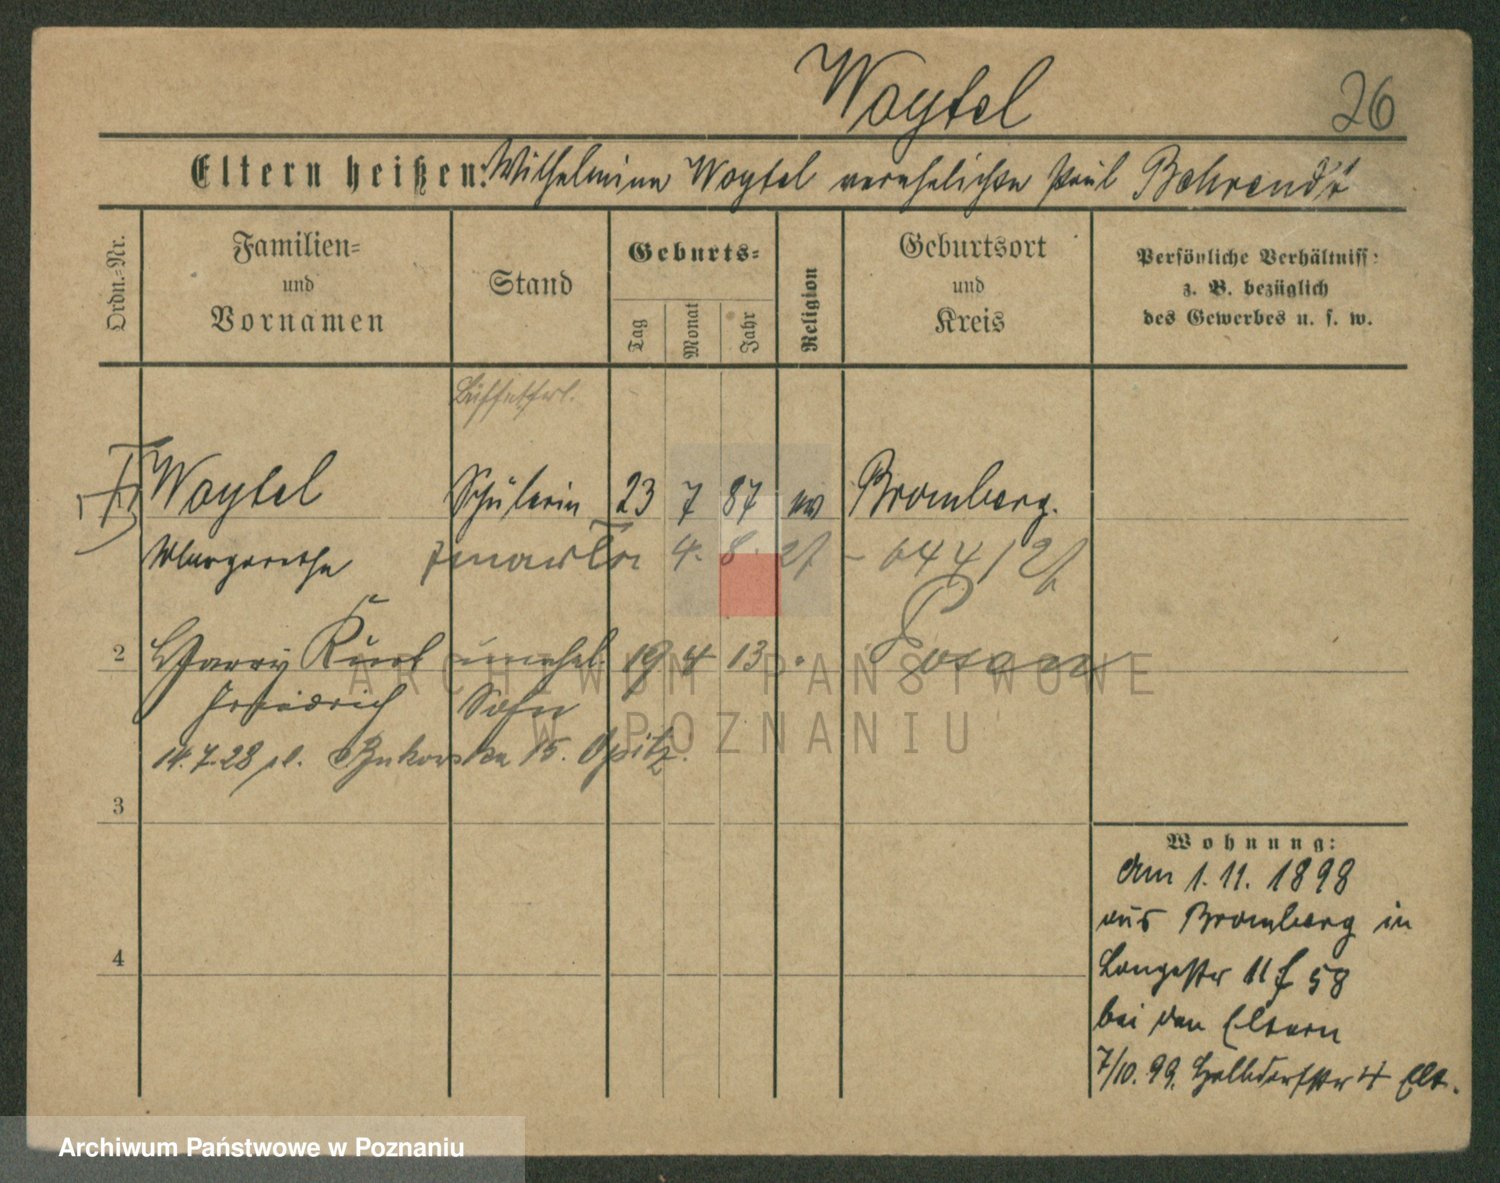 Woytel
26
Eltern heißen: Wilhelmine Woytel verehelichte Paul Behrendt
Ordn.=Nr.
Familien=
und
Vornamen
Stand
Geburts=
Tag
Monat
Jahr
Religion
Geburtsort
und
Kreis
Persönliche Verhältniss:
z. B. bezüglich
des Gewerbes u. s. w.
Büffetfrl.
Woytel Schülerin 23 7 87 ev Bromberg.
Margarethe zmarła 4. 8. 27 - 644/27
2 Harry Kurt unehel. 19 4 13 Posen
Friedrich Sohn
14.7.28 pl. Bukowska 15. Opitz.
3
4
Wohnung:
Am 1. 11. 1898
aus Bromberg in
Langestr 11 f 58
bei den Eltern
7/10. 99. Halbdorfstr 4 Elt.
ARCHIWUM PAŃSTWOWE
W POZNANIU
Archiwum Państwowe w Poznaniu